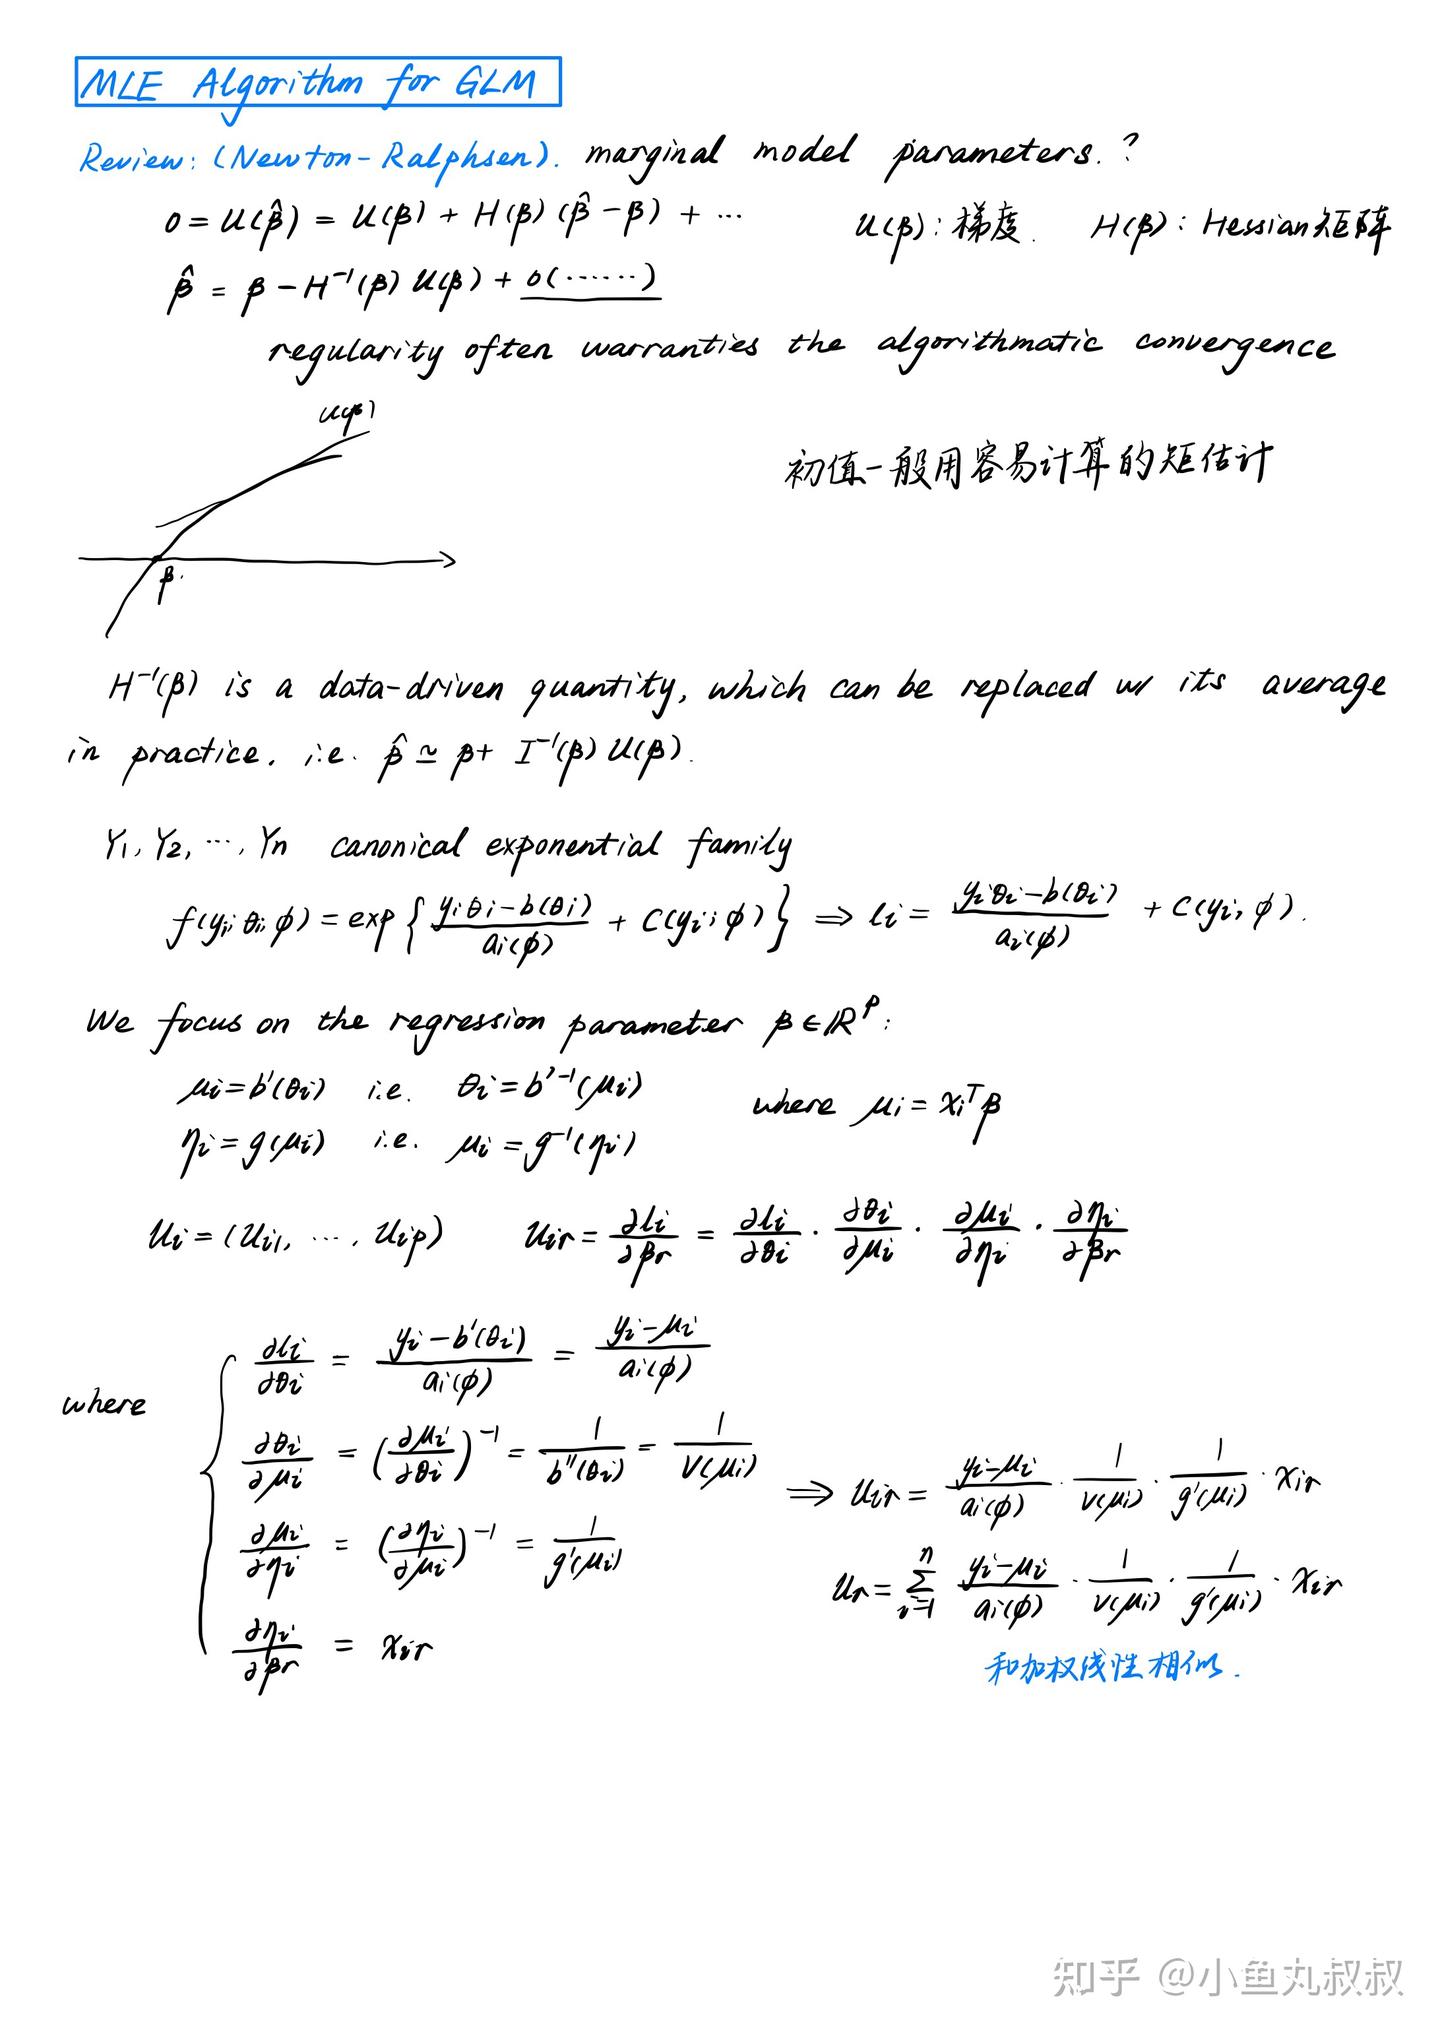 MLE Algorithm for GLM
Review: (Newton-Ralphsen). marginal model parameters.?
0 = U(β̂) = U(β) + H(β) (β̂ - β) + ... U(β): 梯度. H(β): Hessian矩阵
β̂ = β - H⁻¹(β) U(β) + o(······)
regularity often warranties the algorithmatic convergence
U(β)
初值一般用容易计算的矩估计
β.
H⁻¹(β) is a data-driven quantity, which can be replaced w/ its average
in practice. i.e. β̂ ≃ β + I⁻¹(β) U(β).
Y₁, Y₂, ..., Yn canonical exponential family
f(yᵢ; θᵢ, φ) = exp { (yᵢθᵢ - b(θᵢ)) / aᵢ(φ) + C(yᵢ; φ) } ⇒ lᵢ = (yᵢθᵢ - b(θᵢ)) / aᵢ(φ) + C(yᵢ, φ).
We focus on the regression parameter β ∈ ℝᵖ:
μᵢ = b'(θᵢ) i.e. θᵢ = b'⁻¹(μᵢ) where μᵢ = xᵢᵀβ
ηᵢ = g(μᵢ) i.e. μᵢ = g⁻¹(ηᵢ)
Uᵢ = (Uᵢ₁, ..., Uᵢp) Uᵢr = ∂lᵢ/∂βr = ∂lᵢ/∂θᵢ · ∂θᵢ/∂μᵢ · ∂μᵢ/∂ηᵢ · ∂ηᵢ/∂βr
where { ∂lᵢ/∂θᵢ = (yᵢ - b'(θᵢ)) / aᵢ(φ) = (yᵢ - μᵢ) / aᵢ(φ)
∂θᵢ/∂μᵢ = (∂μᵢ/∂θᵢ)⁻¹ = 1/b''(θᵢ) = 1/V(μᵢ)
∂μᵢ/∂ηᵢ = (∂ηᵢ/∂μᵢ)⁻¹ = 1/g'(μᵢ)
∂ηᵢ/∂βr = xᵢr
⇒ Uᵢr = (yᵢ - μᵢ)/aᵢ(φ) · 1/V(μᵢ) · 1/g'(μᵢ) · xᵢr
Ur = Σᵢ₌₁ⁿ (yᵢ - μᵢ)/aᵢ(φ) · 1/V(μᵢ) · 1/g'(μᵢ) · xᵢr
和加权线性相似.
知乎 @小鱼丸叔叔